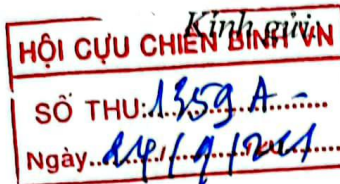 Kính gửi:
HỘI CỰU CHIẾN BINH VN
SỐ THU: 1359 A -
Ngày